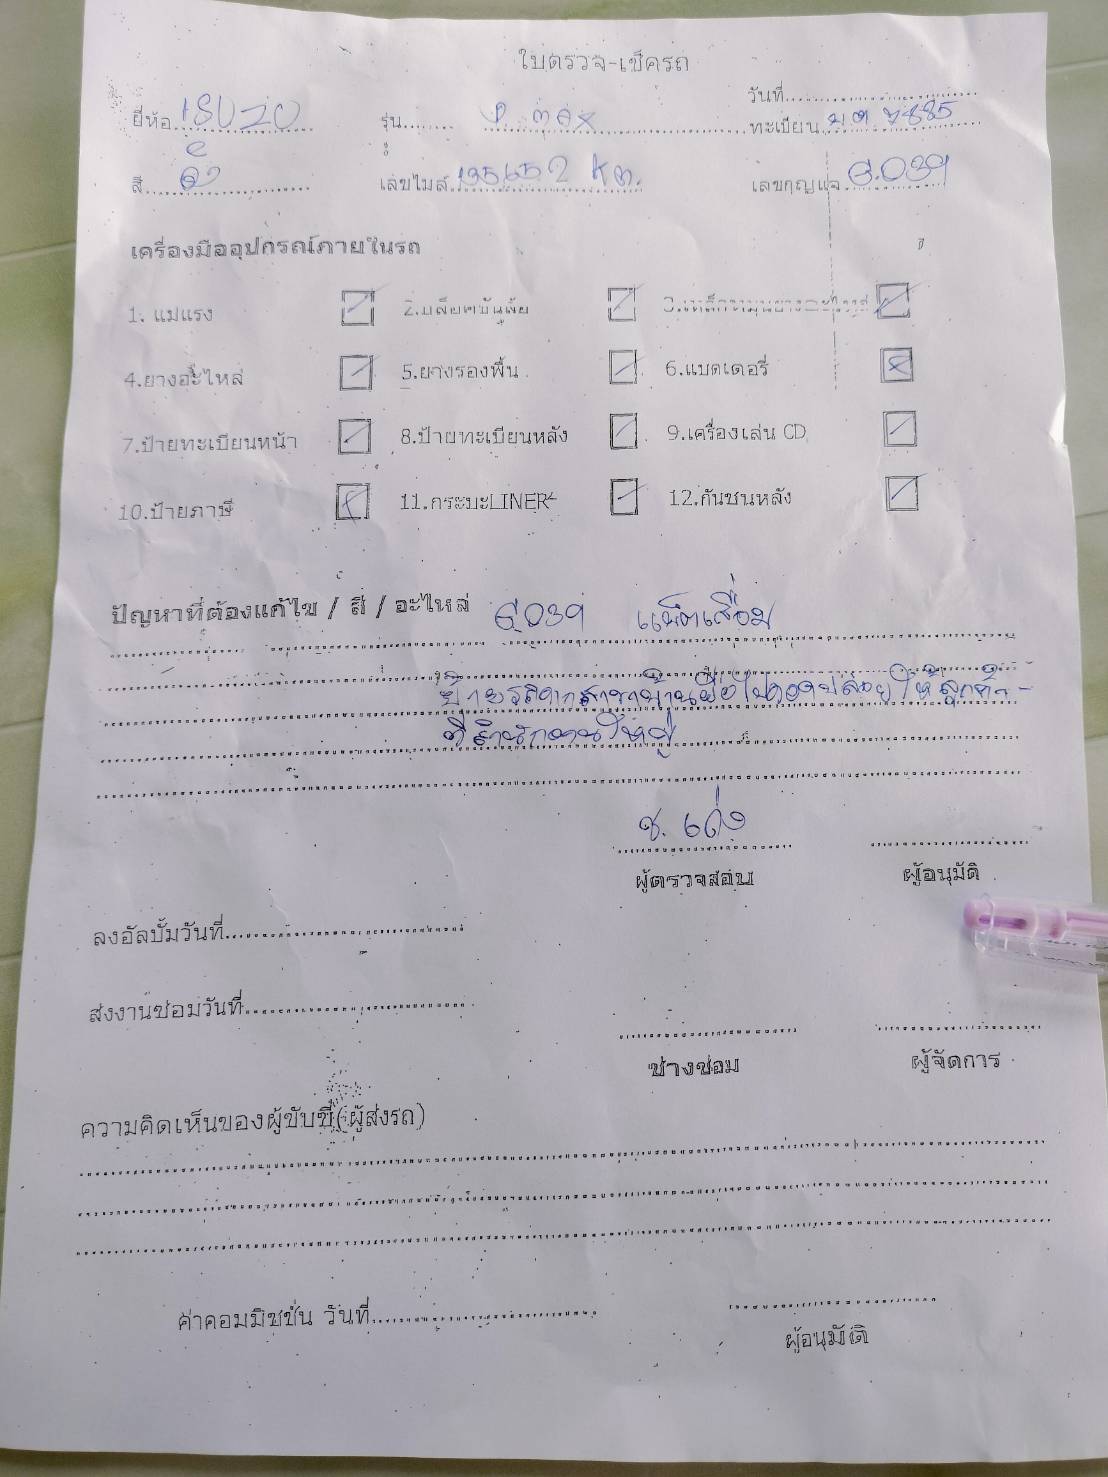 ใบตรวจ-เช็ครถ
วันที่
ยี่ห้อ ISUZU รุ่น D. max ทะเบียน
สี เลขไมล์ 135,652 km. เลขกุญแจ G.039
เครื่องมืออุปกรณ์ภายในรถ
1. แม่แรง 2.บล๊อคขันล้อ
4.ยางอะไหล่ 5.ยางรองพื้น 6.แบตเตอรี่
7.ป้ายทะเบียนหน้า 8.ป้ายทะเบียนหลัง 9.เครื่องเล่น CD
10.ป้ายภาษี 11.กระบะLINER 12.กันชนหลัง
ปัญหาที่ต้องแก้ไข / สี / อะไหล่ G.039 แบ็ตเสื่อม
ย้ายรถจากสาขาบ้านผือไปจอดปล่อยให้ลูกค้า-
ที่สำนักงานใหญ่
ช. เด่ง
ผู้ตรวจสอบ ผู้อนุมัติ
ลงอัลบั้มวันที่
ส่งงานซ่อมวันที่
ช่างซ่อม ผู้จัดการ
ความคิดเห็นของผู้ขับขี่(ผู้ส่งรถ)
ค่าคอมมิชชั่น วันที่
ผู้อนุมัติ